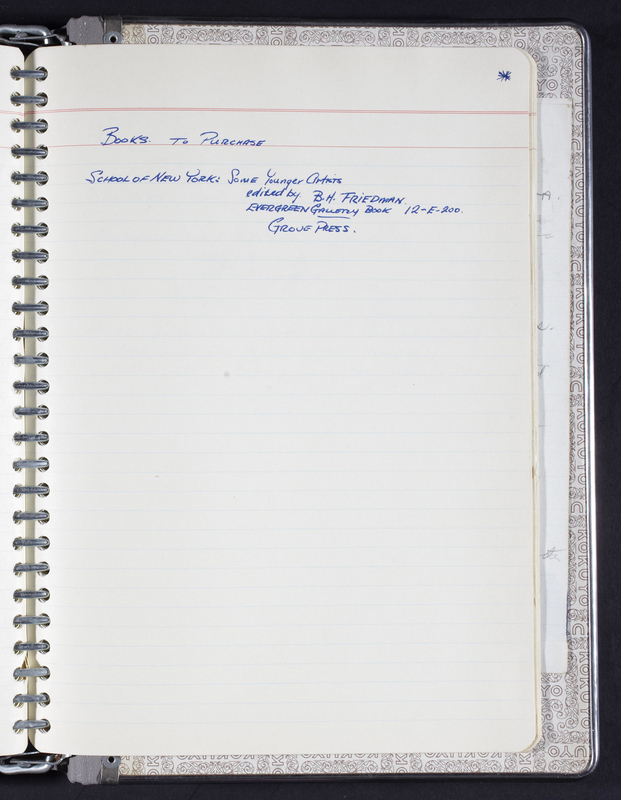 *
BOOKS. TO PURCHASE
SCHOOL OF NEW YORK: SOME Younger Artists
edited by B.H. FRIEDMAN.
EVERGREEN GALLERY BOOK 12-E-200.
GROVE PRESS.
KOKUYO